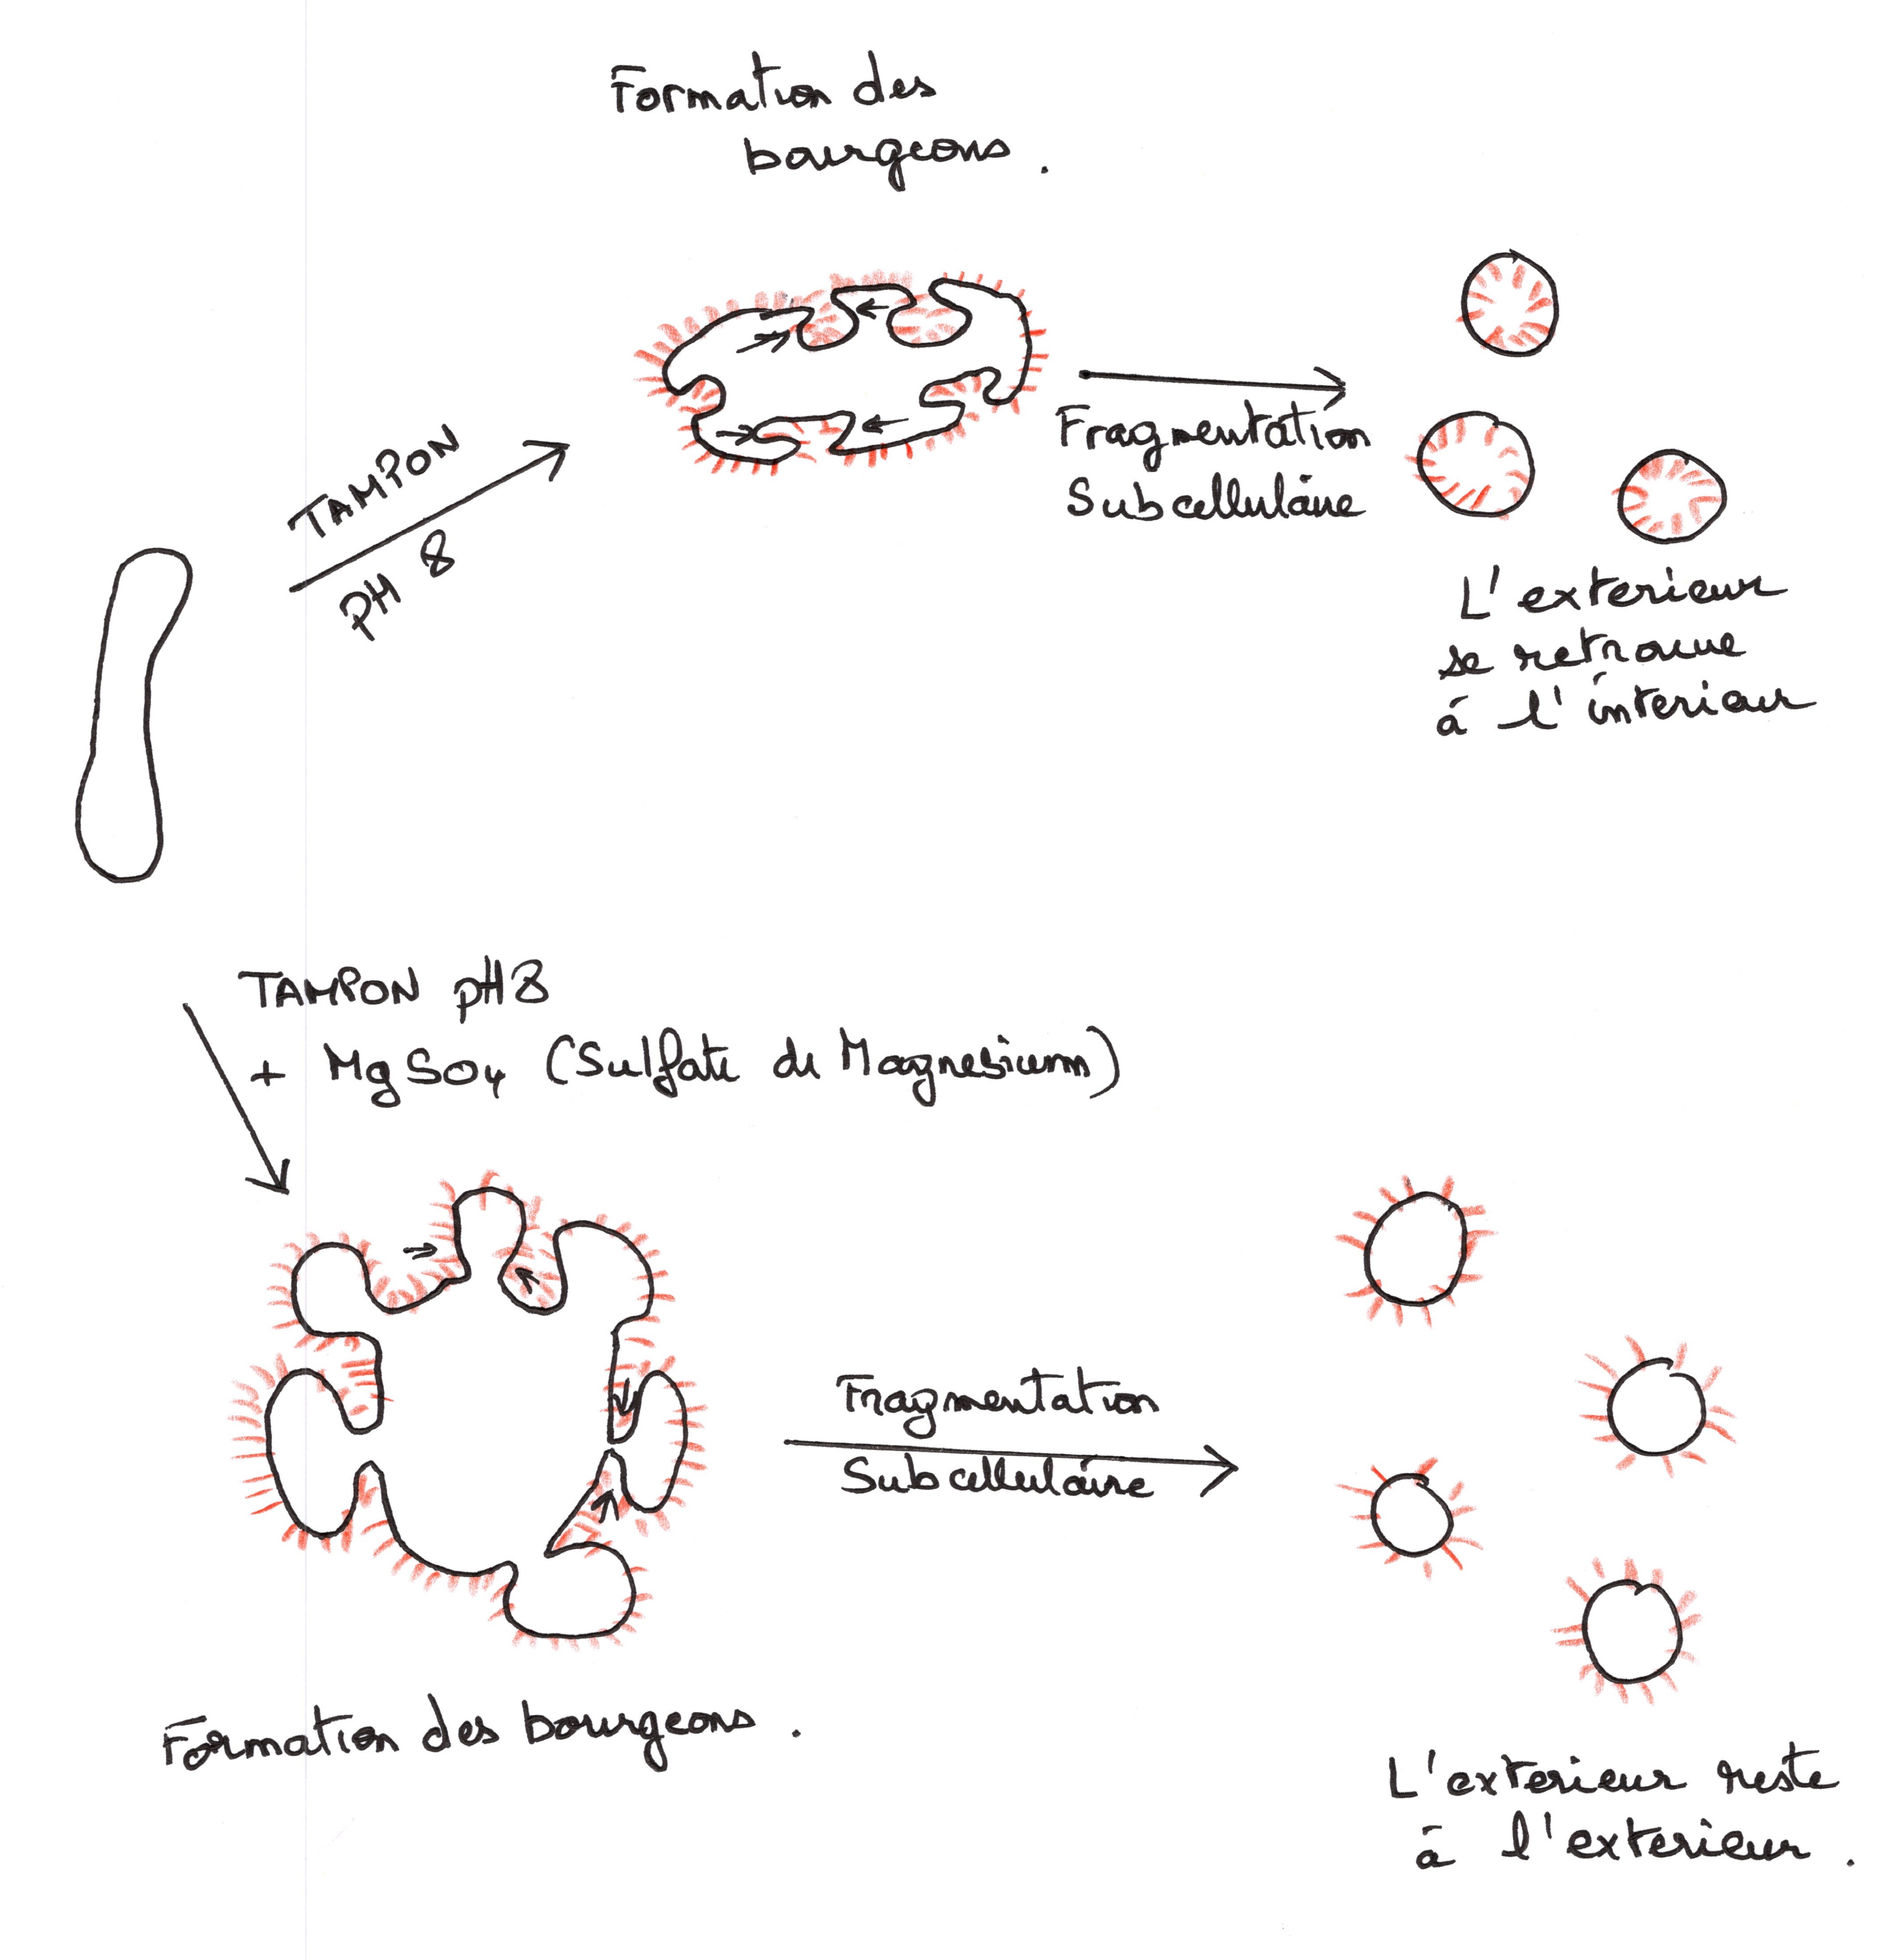 Formation des
bourgeons.
TAMPON
PH 8
Fragmentation
Subcellulaire
L'exterieur
se retrouve
à l'interieur
TAMPON pH 8
+ MgSO4 (Sulfate de Magnesium)
Fragmentation
Subcellulaire
Formation des bourgeons.
L'exterieur reste
à l'exterieur.